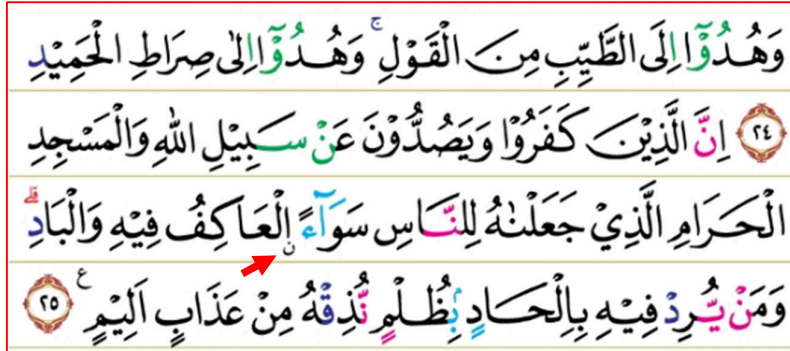 وَهُدُوْۤا اِلَى الطَّيِّبِ مِنَ الْقَوْلِ ۚ وَهُدُوْۤا اِلٰى صِرَاطِ الْحَمِيْدِ
﴿۲۴﴾ اِنَّ الَّذِيْنَ كَفَرُوْا وَيَصُدُّوْنَ عَنْ سَبِيْلِ اللّٰهِ وَالْمَسْجِدِ
الْحَرَامِ الَّذِيْ جَعَلْنٰهُ لِلنَّاسِ سَوَآءً اۨلْعَاكِفُ فِيْهِ وَالْبَادِ ؕ
وَمَنْ يُّرِدْ فِيْهِ بِاِلْحَادٍۭ بِظُلْمٍ نُّذِقْهُ مِنْ عَذَابٍ اَلِيْمٍ ع ﴿۲۵﴾